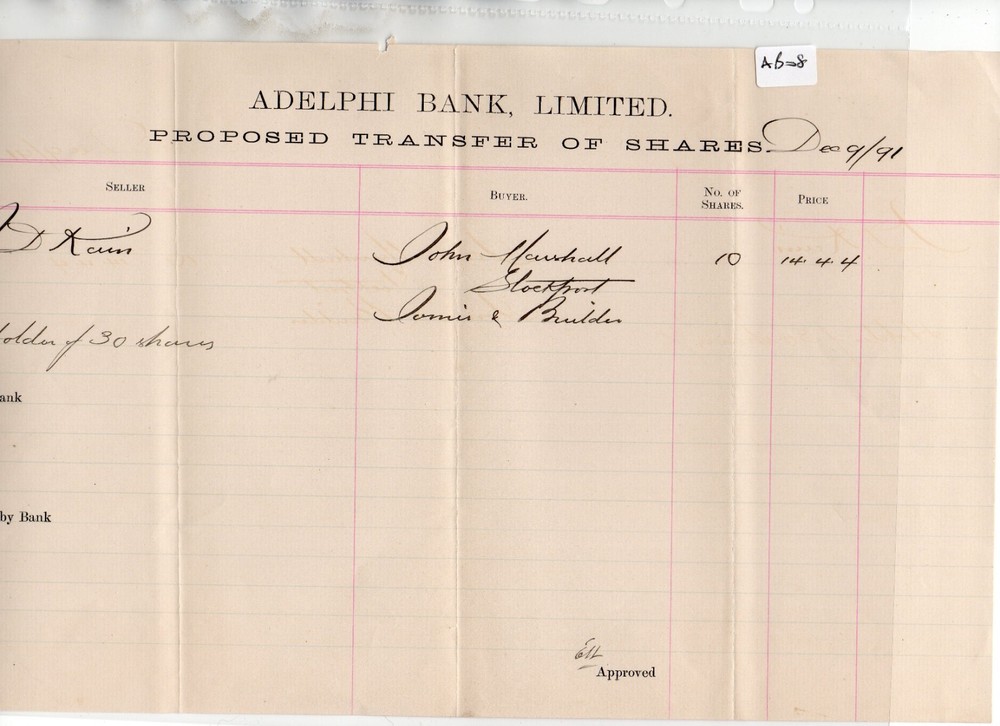 AB=8
ADELPHI BANK, LIMITED.
PROPOSED TRANSFER OF SHARES. Dec 9/91
SELLER
BUYER.
NO. OF
SHARES.
PRICE
John Marshall
10
14. 4. 4
Stockport
Joiner & Builder
older of 30 shares
ank
by Bank
Approved